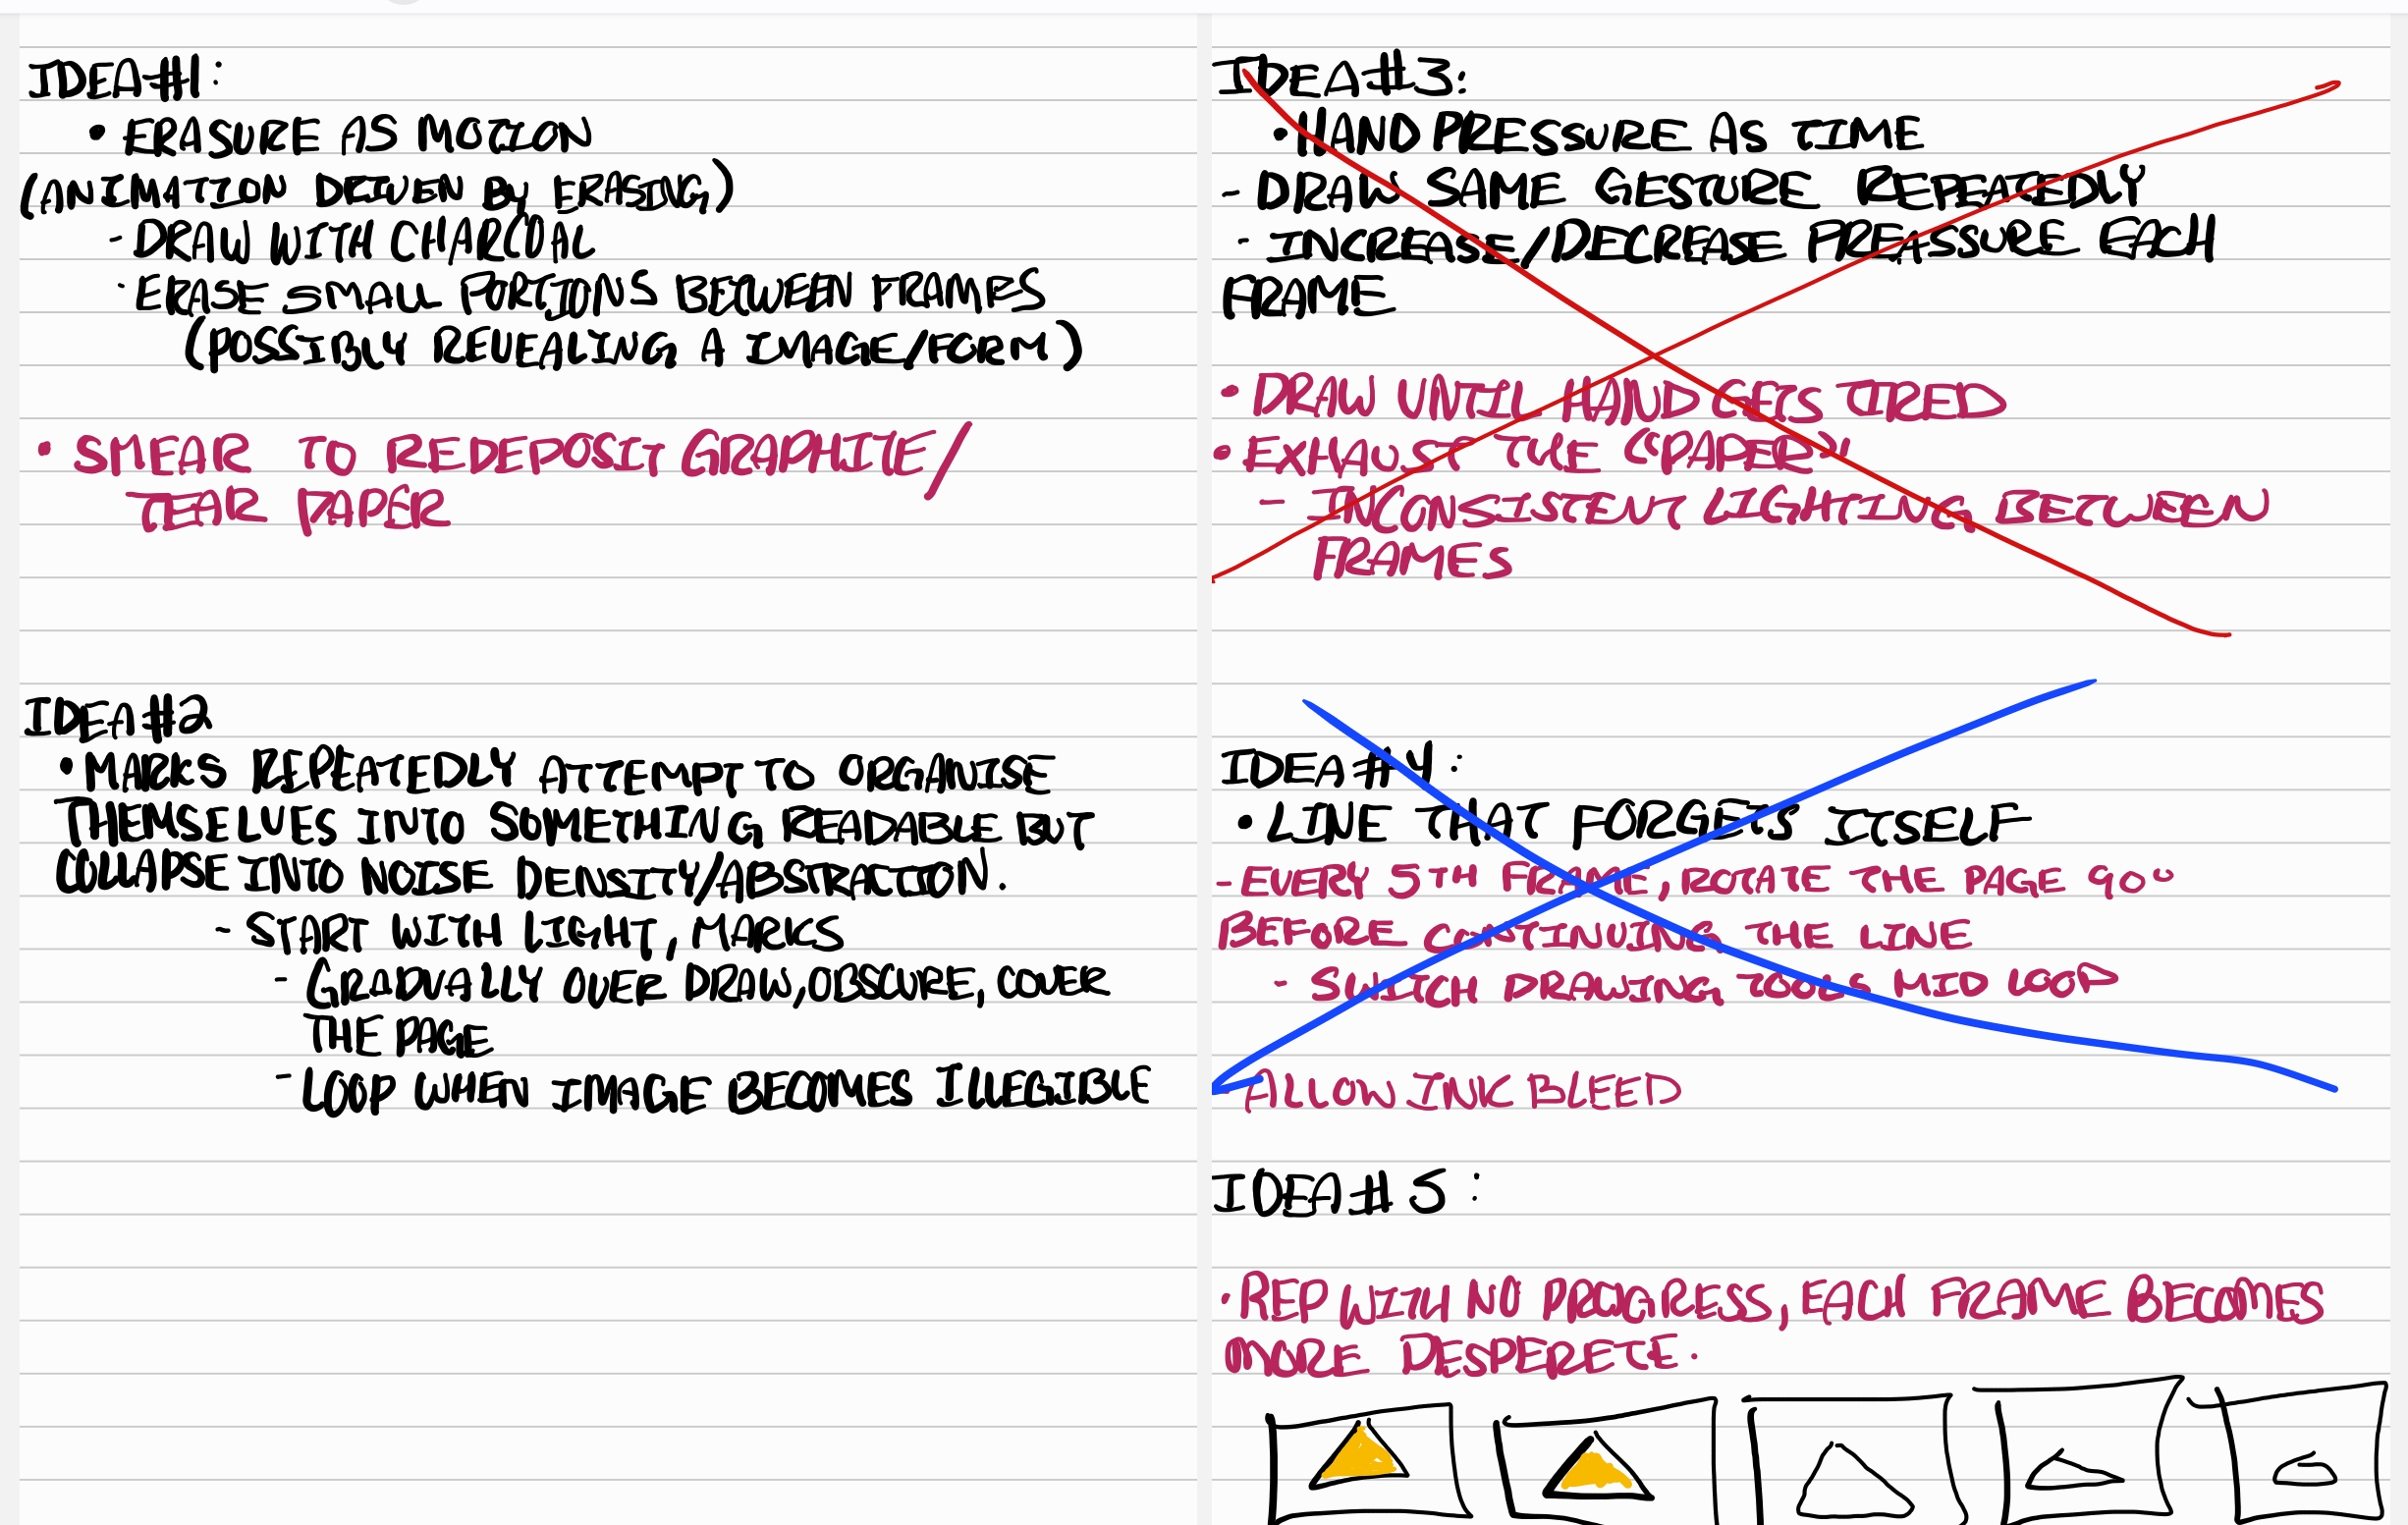 IDEA#1:
• ERASURE AS MOTION
(ANIMATION DRIVEN BY ERASING)
- DRAW WITH CHARCOAL
· ERASE SMALL PORTIONS BETWEEN FRAMES
(POSSIBLY REVEALING A IMAGE/FORM)
• SMEAR TO REDEPOSIT GRAPHITE/
TEAR PAPER
IDEA#2
• MARKS REPEATEDLY ATTEMPT TO ORGANISE
THEMSELVES INTO SOMETHING READABLE BUT
COLLAPSE INTO NOISE DENSITY/ABSTRACTION.
- START WITH LIGHT, MARKS
- GRADUALLY OVER DRAW, OBSCURE, COVER
THE PAGE
- LOOP WHEN IMAGE BECOMES ILLEGIBLE
IDEA#3:
• HAND PRESSURE AS TIME
- DRAW SAME GESTURE REPEATEDLY
- INCREASE/DECREASE PREASSURE EACH
FRAME
• DRAW UNTIL HAND GETS TIRED
• EXHAUST THE "PAPER"
- INCONSISTENT LIGHTING BETWEEN
FRAMES
IDEA#4:
• LINE THAT FORGETS ITSELF
- EVERY 5TH FRAME, ROTATE THE PAGE 90°
BEFORE CONTINUING THE LINE
- SWITCH DRAWING TOOLS MID LOOP
- ALLOW INK BLEED
IDEA#5:
• REP WITH NO PROGRESS, EACH FRAME BECOMES
MORE DESPERETE.